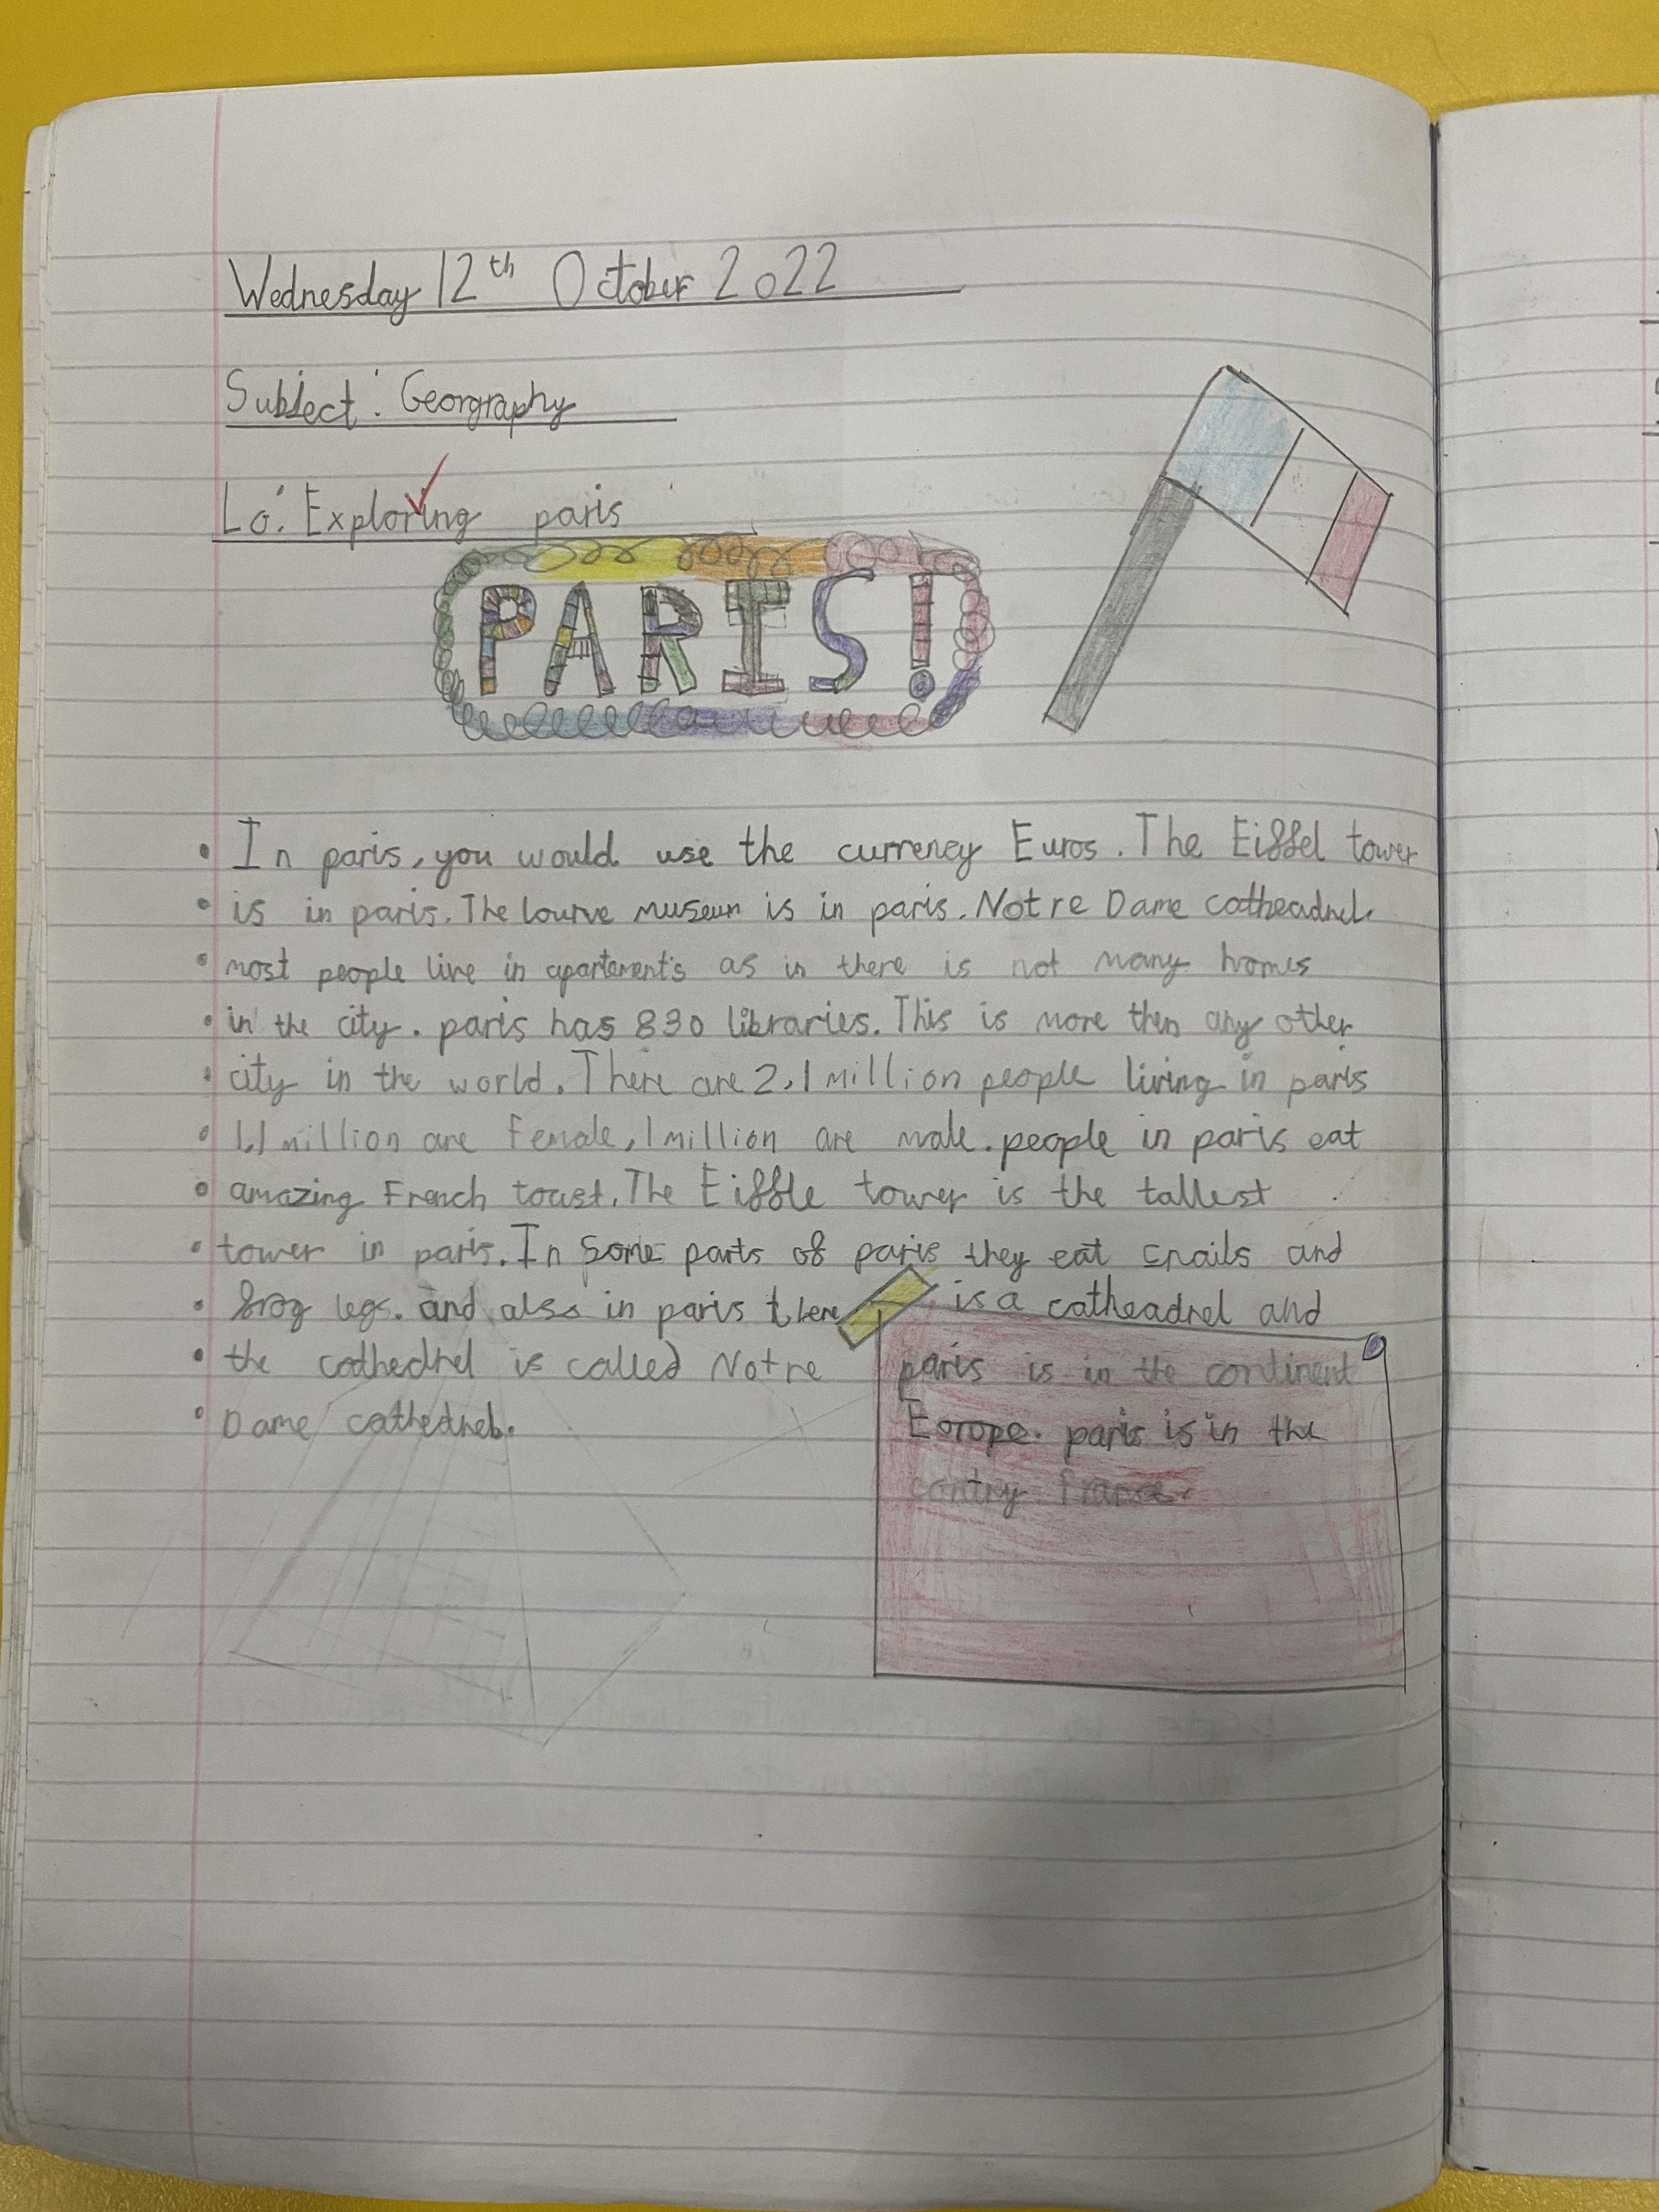 Wednesday 12th October 2022
Subject: Georgraphy
Lo: Exploring paris
PARIS!
• In paris, you would use the currency Euros. The Eiffel tower
• is in paris. The lourve museum is in paris. Notre Dame catheadrel.
• most people live in apartement's as in there is not many homes
• in the city. paris has 830 libraries. This is more then any other
• city in the world. There are 2,1 million people living in paris
• 1,1 million are female, 1 million are male. people in paris eat
• amazing French toast. The Eiffle tower is the tallest
• tower in paris. In some parts of paris they eat snails and
• frog legs. and also in paris there is a catheadrel and
• the cathedrel is called Notre
• Dame cathedrel.
paris is in the continent
Eorope. paris is in the
contry france.